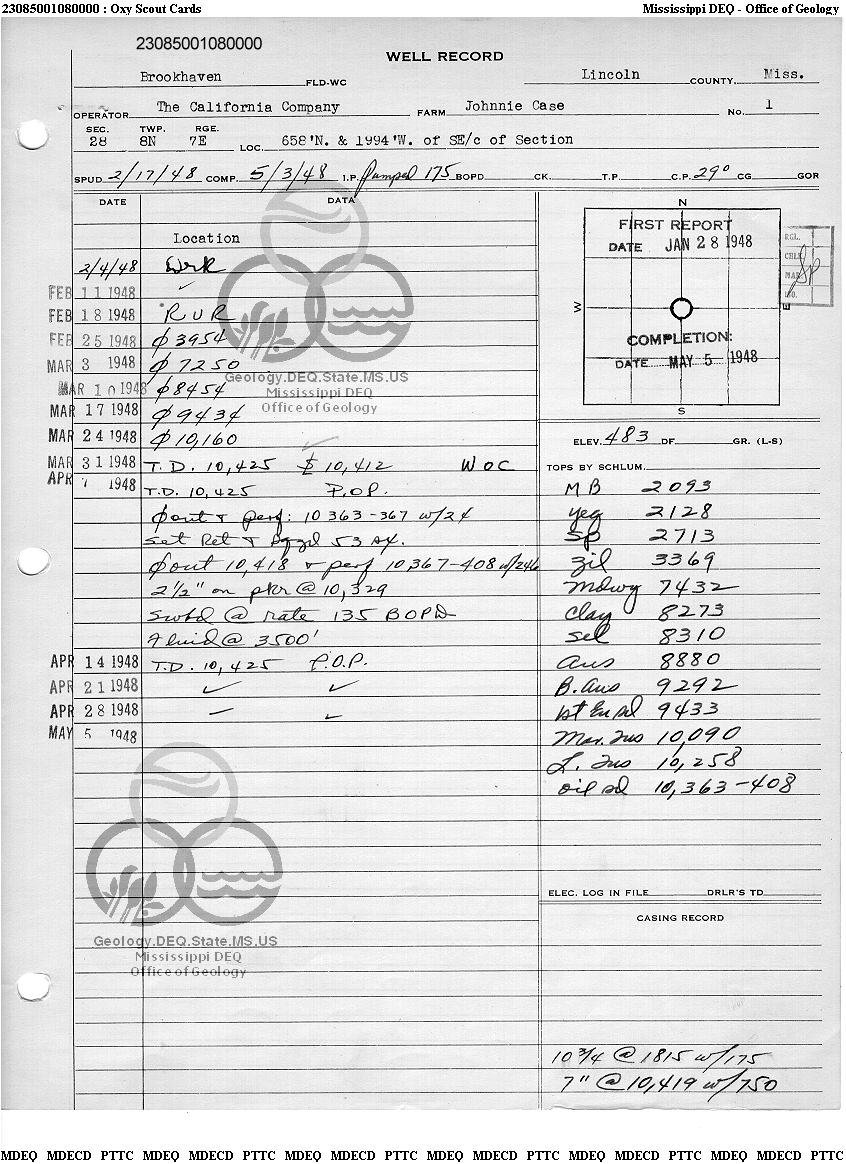 23085001080000 : Oxy Scout Cards
Mississippi DEQ - Office of Geology
23085001080000
WELL RECORD
Brookhaven FLD-WC Lincoln COUNTY, Miss.
OPERATOR The California Company FARM Johnnie Case No. 1
SEC. TWP. RGE.
28 8N 7E LOC. 658'N. & 1994'W. of SE/c of Section
SPUD 2/17/48 COMP. 5/3/48 I.P. Pumped 175 BOPD CK. T.P. C.P. 29° CG GOR
DATE DATA
Location
2/4/48
FEB 11 1948 ✓
FEB 18 1948 RUR
FEB 25 1948 φ 3954
MAR 3 1948 φ 7250
MAR 10 1948 φ 8454
MAR 17 1948 φ 9434
MAR 24 1948 φ 10,160
MAR 31 1948 T.D. 10,425 10,412 WOC
APR 7 1948 T.D. 10,425 P.O.P.
φ out & perf: 10 363-367 w/24
set Ret & sqzd 53 sx.
φ out 10,418 & perf 10,367-408 w/246
2 1/2" on pkr @ 10,329
Swbd @ rate 135 BOPD
Fluid @ 3500'
APR 14 1948 T.D. 10,425 P.O.P.
APR 21 1948 ✓ ✓
APR 28 1948 — ✓
MAY 5 1948
N
FIRST REPORT
DATE JAN 28 1948
W
E
COMPLETION:
DATE MAY 5 1948
S
RGL.
CHLK
MAP
NO.
ELEV. 483 DF. GR. (L-S)
TOPS BY SCHLUM.
MB 2093
Yeg 2128
Sp 2713
Zil 3369
Mdwy 7432
Clay 8273
Sel 8310
Aus 8880
B. Aus 9292
1st Eu sd 9433
Mar. Tus 10,090
L. Tus 10,258
oil sd 10,363-408
ELEC. LOG IN FILE DRLR'S TD
CASING RECORD
10 3/4 @ 1815 w/175
7" @ 10,419 w/750
Geology.DEQ.State.MS.US
Mississippi DEQ
Office of Geology
Geology.DEQ.State.MS.US
Mississippi DEQ
Office of Geology
MDEQ MDECD PTTC MDEQ MDECD PTTC MDEQ MDECD PTTC MDEQ MDECD PTTC MDEQ MDECD PTTC MDEQ MDECD PTTC